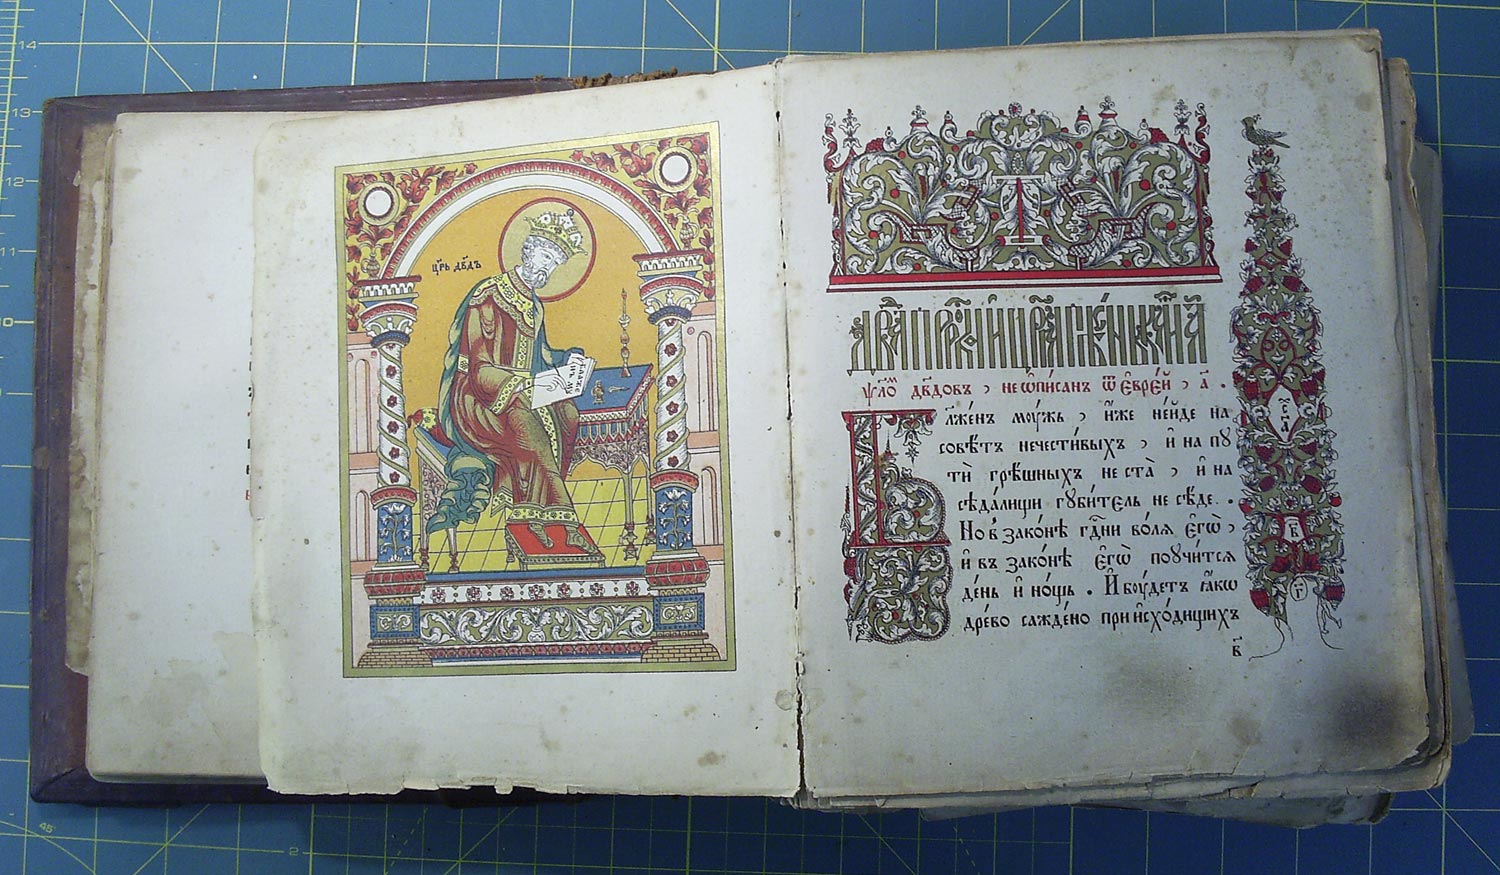 14
13
12
11
10
45
2
цр҃ь дв҃дъ
блаже
нъ му
ѱло́м дв҃довъ , не ѡ҆пи́санъ ѿ є҆врє́й , а҃ .
Бл҃же́нъ моу́жъ , и҆́же не и҆́де на
совѣ́тъ нечести́выхъ , и҆ на пу
тѝ грѣ́шныхъ не ста̀ , и҆ на
сѣда́лищи губи́тель не сѣ́де .
Но в̾ зако́нѣ гдⷭ҇ни во́лѧ є҆гѡ̀ ,
и҆ въ зако́нѣ є҆гѡ̀ поучи́тсѧ
де́нь и҆ но́щь . И҆ бꙋ́детъ ꙗ҆́кѡ
дре́во саждено̀ при и҆схо́дищихъ
в҃